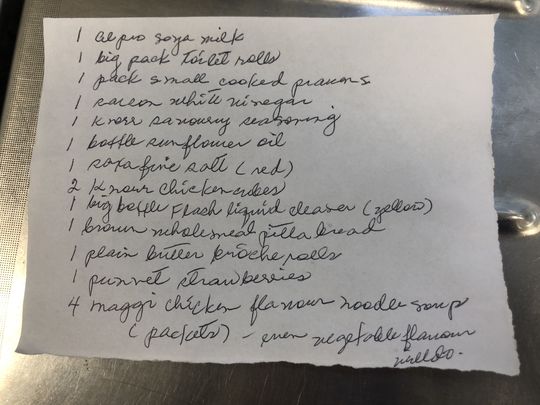 1 alpro soya milk
1 big pack toilet rolls
1 pack small cooked prawns
1 sarson white vinegar
1 knorr savoury seasoning
1 bottle sunflower oil
1 saxa fine salt (red)
2 knorr chicken cubes
1 big bottle Flash liquid cleaner (yellow)
1 brown wholemeal pitta bread
1 plain butter brioche rolls
1 punnet strawberries
4 maggi chicken flavour noodle soup
(packets) - even vegetable flavour
will do.